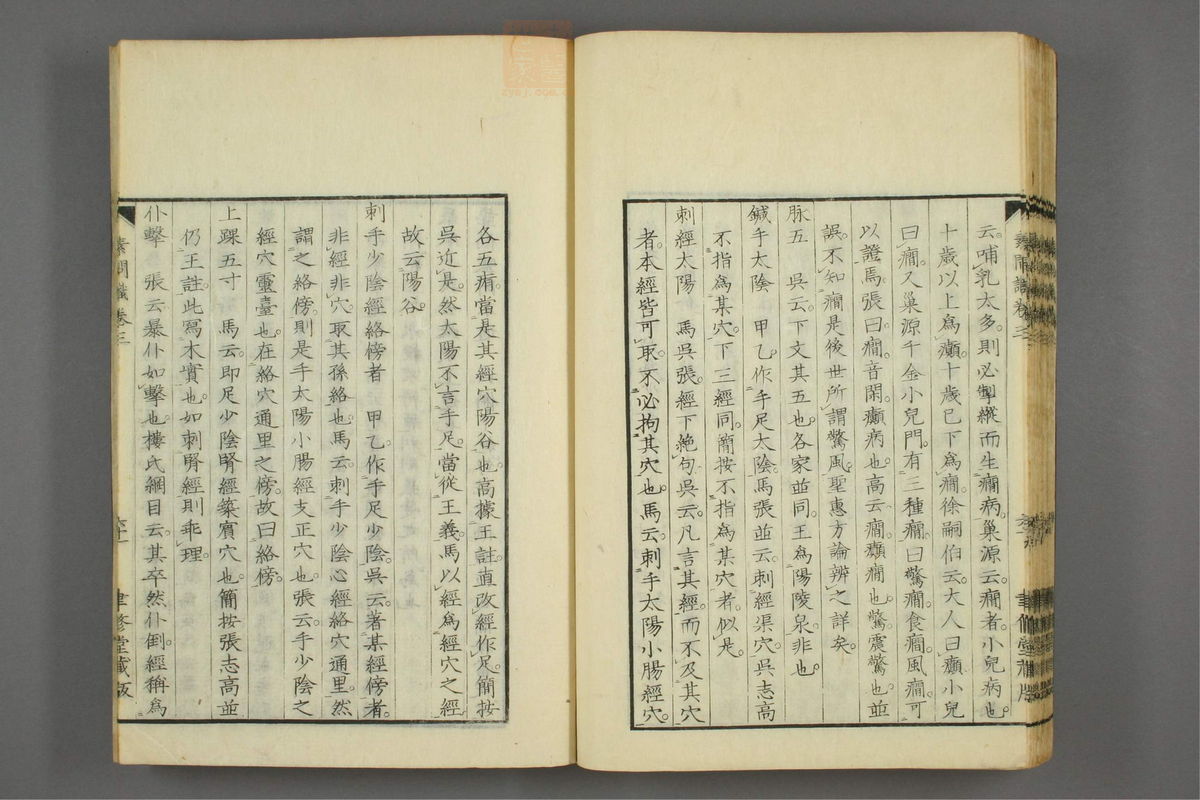 云哺乳太多則必掣縱而生癎病巢源云癎者小兒病也
十歲以上爲癲十歲已下爲癎徐嗣伯云大人曰癲小兒
曰癎又巢源千金小兒門有三種癎曰驚癎食癎風癎可
以證焉張曰癎音閑癲病也高云癎癲癎也驚震驚也並
誤不知癎是後世所謂驚風聖惠方論辨之詳矣
脉五 吳云下文其五也各家並同王爲陽陵泉非也
鍼手太陰 甲乙作手足太陰馬張並云刺經渠穴吳志高
不指爲某穴下三經同簡按不指爲某穴者似是
刺經太陽 馬吳張經下絕句吳云凡言其經而不及其穴
者本經皆可取不必拘其穴也馬云刺手太陽小腸經穴
各五痏當是其經穴陽谷也高據王註直改經作足簡按
吳近是然太陽不言手足當從王義馬以經爲經穴之經
故云陽谷
刺手少陰經絡傍者 甲乙作手足少陰吳云著某經傍者
非經非穴取其孫絡也馬云刺手少陰心經絡穴通里然
謂之絡傍則是手太陽小腸經支正穴也張云手少陰之
經穴靈臺也在絡穴通里之傍故曰絡傍
上踝五寸 馬云即足少陰腎經築賓穴也簡按張志高並
仍王註此寫木實也如刺腎經則乖理
仆擊 張云暴仆如擊也樓氏綱目云其卒然仆倒經稱爲
素問識卷三
六十一
聿修堂藏版